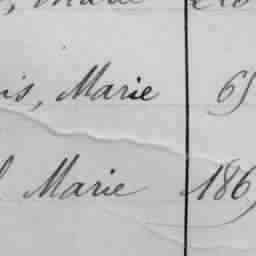 Marie
is, Marie 65
Marie 186